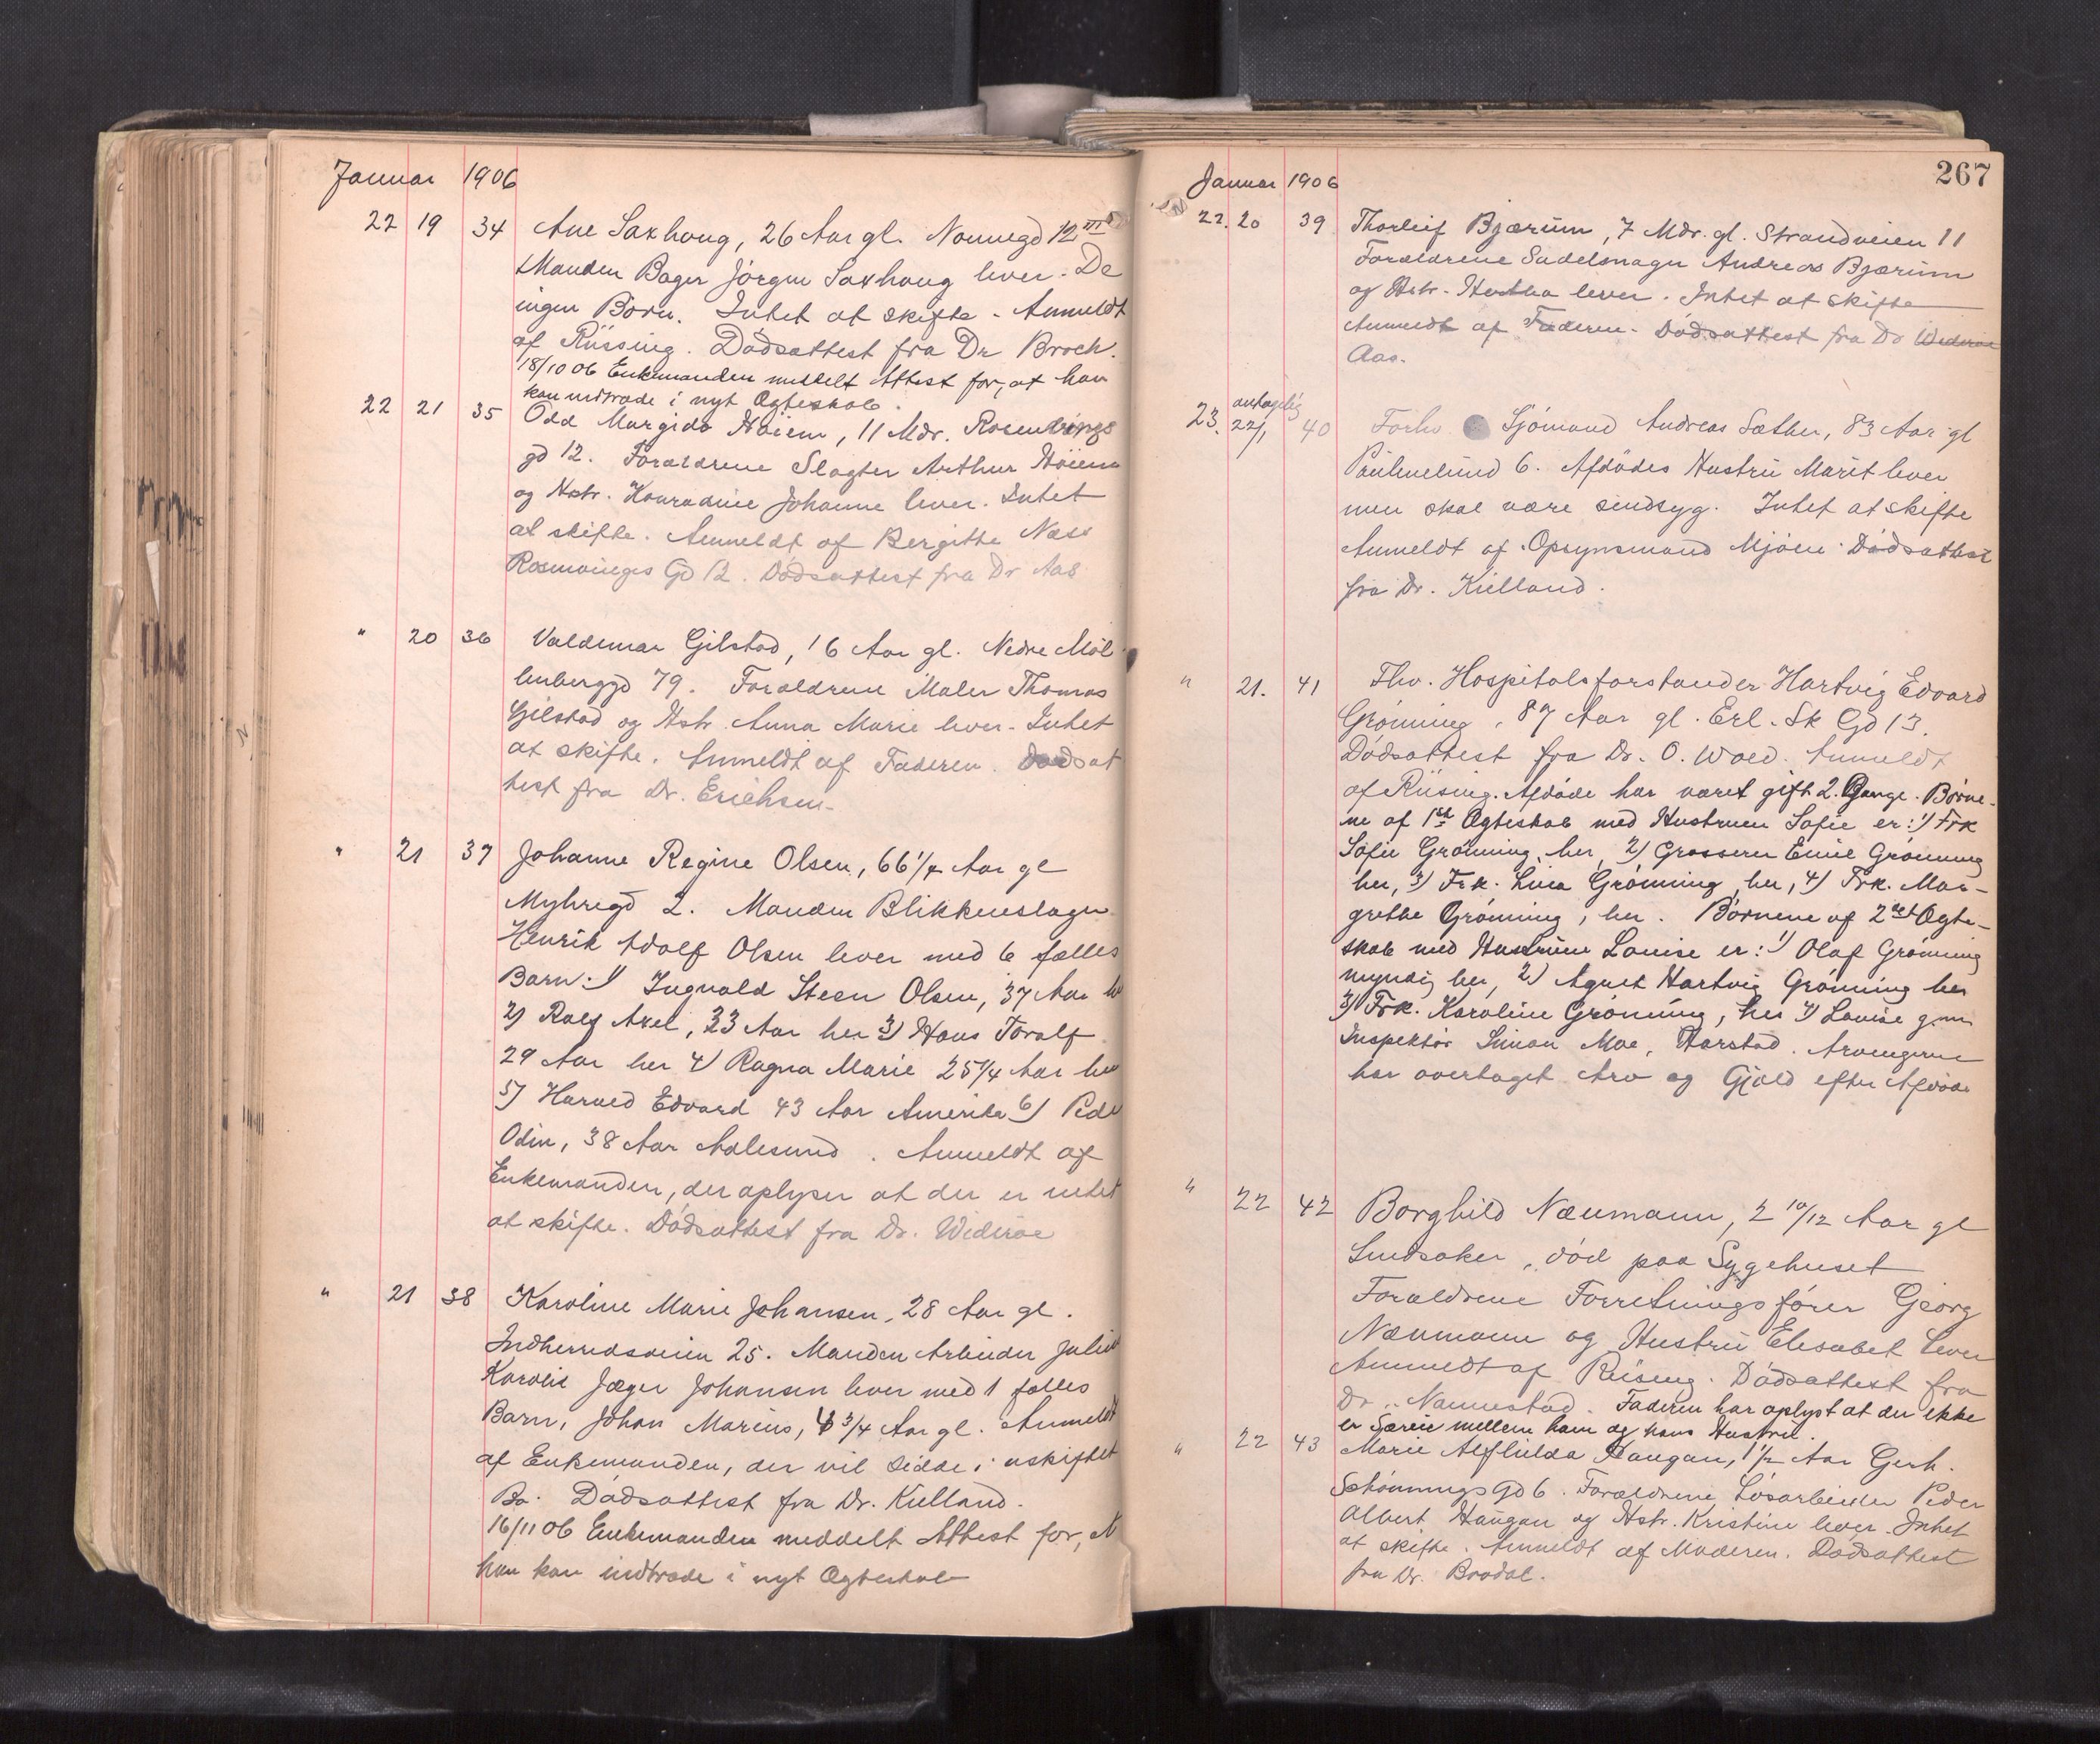 Januar 1906
22 19 34 Ane Saxhaug, 26 Aar gl. Nonnegd 12
Manden Bager Jörgen Saxhaug lever. De
ingen Börn. Intet at skifte. Anmeldt
af Riising. Dödsattest fra Dr Broch.
18/10 06 Enkemanden meddelt Attest for, at han
kan indtræde i nyt Ægteskab.
22 21 35 Odd Margido Höiem, 11 Mdr. Rosenborgs
gd 12. Forældrene Slagter Arthur Höiem
og Hstr. Konradine Johanne lever. Intet
at skifte. Anmeldt af Bergitte Næss
Gd 12. Dödsattest fra Dr Aas
" 20 36 Valdemar Gilstad, 16 Aar gl. Nedre Möl
lenberggd 79. Forældrene Maler Thomas
Gilstad og Hstr. Anna Marie lever. Intet
at skifte. Anmeldt af Faderen. Dödsat
test fra Dr. Erichsen.
" 21 37 Johanne Regine Olsen, 66 1/4 Aar gl
Myhregd 2. Manden Blikkenslager
Henrik Adolf Olsen lever med 6 fælles
Barn: 1) Ingvald Steen Olsen, 37 Aar her
2) Rolf Axel, 33 Aar her 3) Hans Toralf
29 Aar her 4) Ragna Marie 25 1/4 Aar her
5) Harald Edvard 43 Aar Amerika 6) Peder
Odin, 38 Aar Aalesund. Anmeldt af
Enkemanden, der oplyser at der er intet
at skifte. Dödsattest fra Dr. Wideröe
" 21 38 Karoline Marie Johansen, 28 Aar gl.
Indherredsveien 25. Manden Arbeider Julius
Karolis Jæger Johansen lever med 1 fælles
Barn, Johan Marius, 3/4 Aar gl. Anmeldt
af Enkemanden, der vil sidde i uskiftet
Bo. Dödsattest fra Dr. Kielland.
16/11 06 Enkemanden meddelt Attest for, at
han kan indtræde i nyt Ægteskab
267
Januar 1906
22. 20 39 Thorleif Bjærum, 7 Mdr. gl. Strandveien 11
Forældrene Sadelmager Andreas Bjærum
og Hstr. Hertha lever. Intet at skifte
Anmeldt af Faderen. Dödsattest fra Dr Wideröe
Aas.
antagelig
23. 22/1 40 Forhv. Sjömand Andreas Sæther, 83 Aar gl
Paulinelund 6. Afdödes Hustru Marit lever
men skal være sindsyg. Intet at skifte
Anmeldt af Opsynsmand Mjöen. Dödsattest
fra Dr. Kielland.
" 21. 41 Fhv. Hospitalsforstander Hartvig Edvard
Grönning, 87 Aar gl. Erl. Sk Gd 13.
Dödsattest fra Dr. O. Wold. Anmeldt
af Riising. Afdöde har været gift 2. Gange. Börne-
ne af 1ste Ægteskab med Hustruen Sofie er: 1) Frk
Sofie Grönning, her, 2) Grosserer Emil Grönning
her, 3) Frk. Lina Grönning, her, 4) Frk. Mar-
grethe Grönning, her. Börnene af 2det Ægte-
skab med Hustruen Louise er: 1) Olaf Grönning
myndig her, 2) Agent Hartvig Grönning her
3) Frk. Karoline Grönning, her 4) Louise g.m.
Inspektör Simon Moe, Harstad. Arvingerne
har overtaget Arv og Gjæld efter Afdöde
" 22 42 Borghild Næumann, 2 10/12 Aar gl
Sundsaker, död paa Sygehuset
Forældrene Forretningsförer Georg
Næumann og Hustru Elisabet lever
Anmeldt af Riising. Dödsattest fra
Dr. Nannestad. Faderen har oplyst at der ikke
er Særeie mellem ham og hans Hustru.
" 22 43 Marie Alfhilda Haugan, 1 1/2 Aar Gerh.
Schönnings Gd 6. Forældrene Lösarbeider Peder
Albert Haugan og Hstr. Kristine lever. Intet
at skifte. Anmeldt af Moderen. Dödsattest
fra Dr. Brodal.